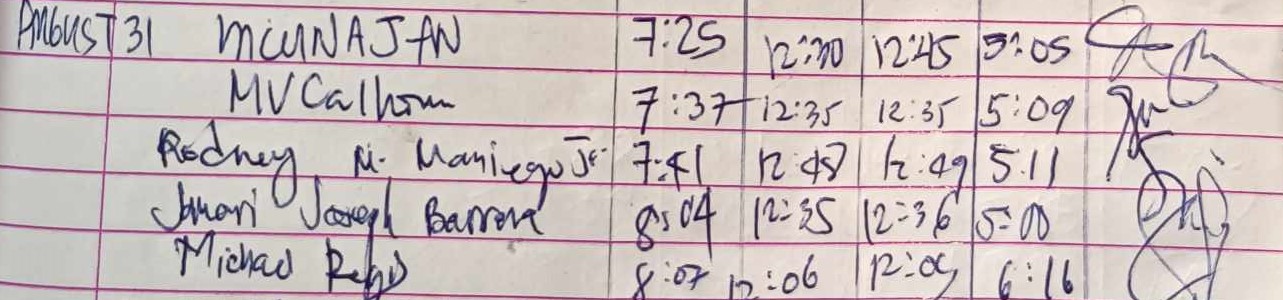 AUGUST 31 7:25 12:45 5:05
MV Calhoun 7:37 12:35 12:35 5:09
Rodney M. Maniego Jr. 7:41 12:48 12:49 5:11
Joseph 8:04 12:35 12:36 5:00
Michael 8:07 12:06 6:16